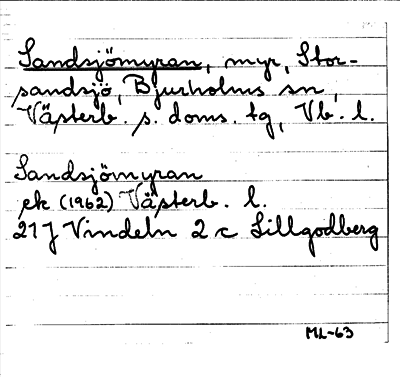 Sandsjömyran, myr, Stor-
sandsjö, Bjurholms sn,
Västerb. s. doms. tg, Vb. l.
Sandsjömyran
ek (1962) Västerb. l.
21 J Vindeln 2 c Lillgodberg
ML-63